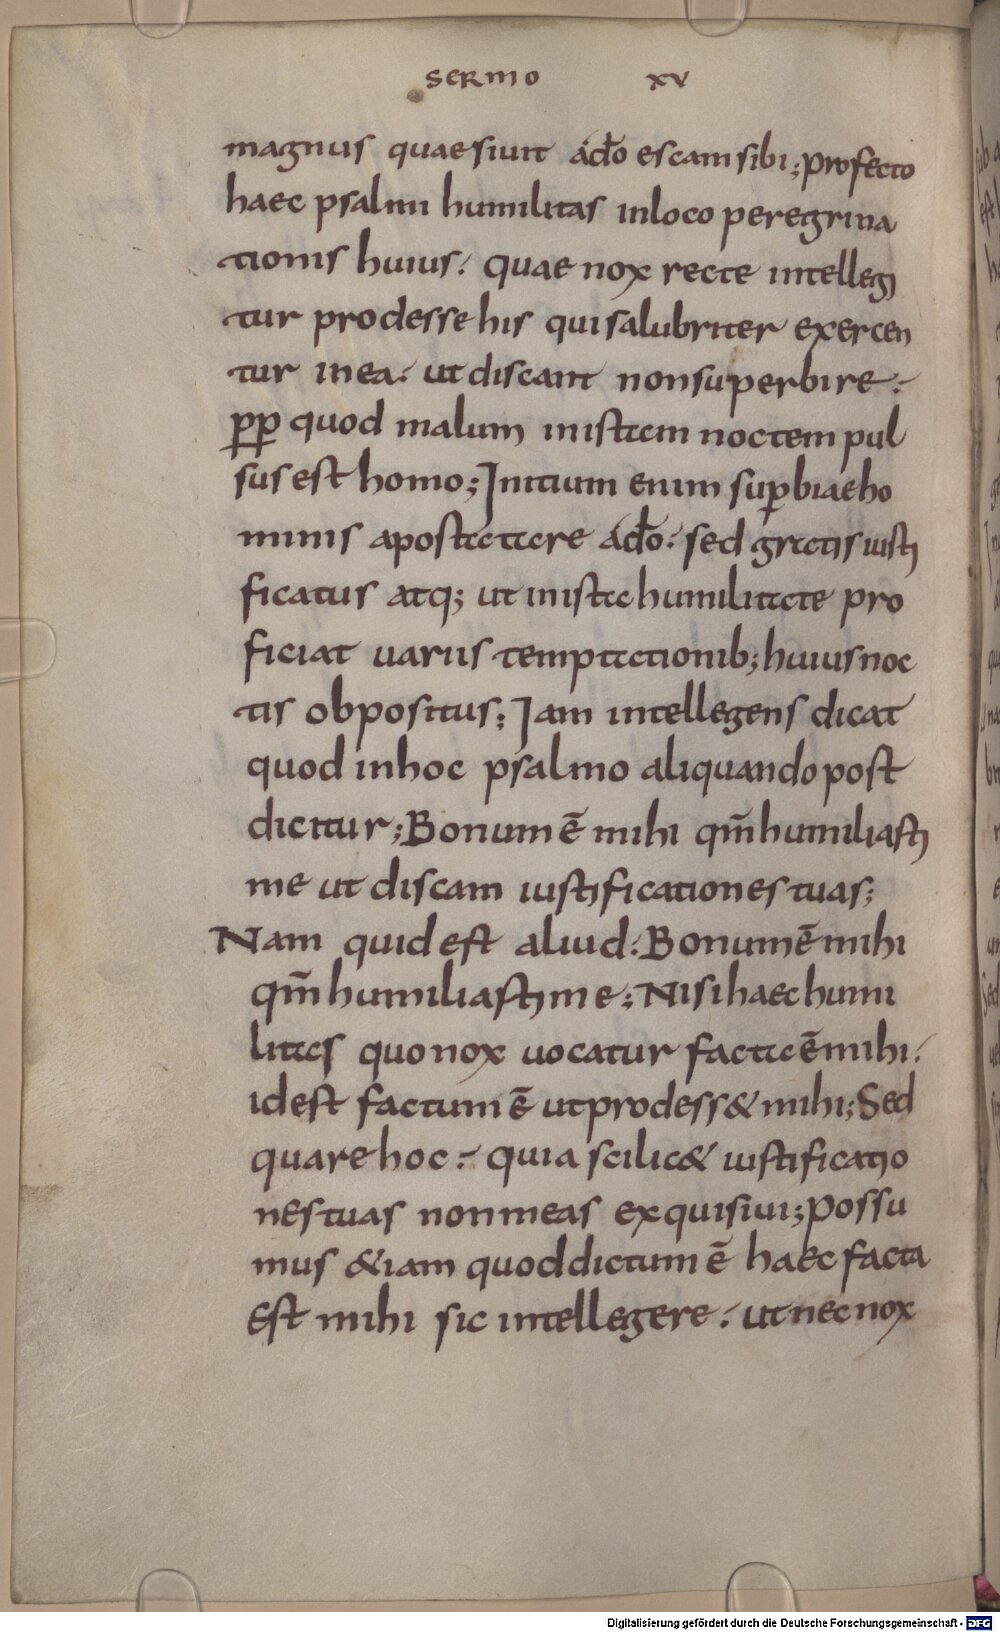 sermo xv
magnus quaesiunt ado escam sibi; profecto
haec psalmi humilitas inloco peregrina
tionis huius: quae nox recte intellegi
tur prodesse his qui salubriter exercen
tur inea: ut discant non superbire:
pp quod malum inistam noctem pul
sus est homo; Initium enim supbiae ho
minis apostatare ado: sed gratis iusti
ficatus atq; ut inista humilitate pro
ficiat uariis temptationib; huius noc
tis obpositus; Iam intellegens dicat
quod inhoc psalmo aliquando post
dicitur; Bonum ē mihi qm̄ humiliasti
me ut discam iustificationes tuas;
Nam quid est aliud: Bonum ē mihi
qm̄ humiliasti me; Nisi haec humi
litas quo nox uocatur facta ē mihi:
id est factum ē ut prodess& mihi; Sed
quare hoc: quia scilic& iustificatio
nes tuas non meas exquisiui; possu
mus &iam quod dictum ē haec facta
est mihi sic intellegere: ut nec nox
Digitalisierung gefördert durch die Deutsche Forschungsgemeinschaft - DFG